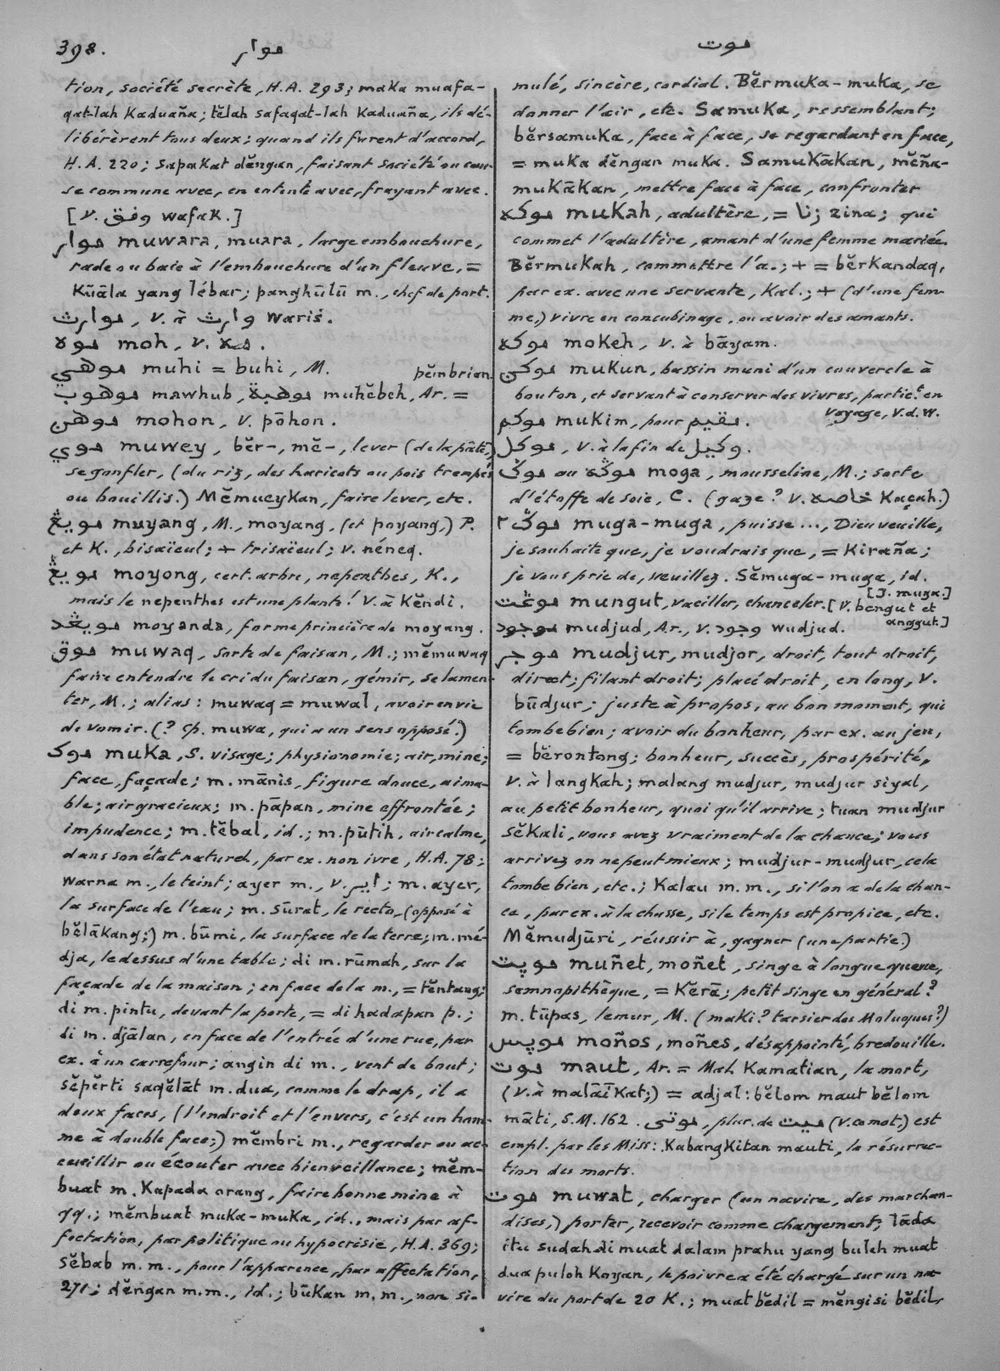 398.
موار
موت
tion, société secrète, H.A. 293; maka muafa-
qat-lah Kaduaña; tĕlah safaqat-lah Kaduaña, ils dé-
libérèrent tous deux; quand ils furent d'accord,
H.A. 220; sapakat dĕngan, faisant société ou cau-
se commune avec, en entente avec, frayant avec.
[V. وفق wafak.]
موار muwara, muara, large embouchure,
rade ou baie à l'embouchure d'un fleuve, =
Kūāla yang lébar; panghūlū m., chef de port.
موارث, V. à وارث wariš.
موه moh, V. مه.
موهي muhi = buhi, M.
موهوب mawhub, موهبة muhĕbeh, Ar. = pĕmbrian
موهن mohon, V. pōhon.
موي muwey, bĕr-, mĕ-, lever (de la pâte),
se gonfler, (du riz, des haricots ou pois trempés
ou bouillis.) Mĕmueykan, faire lever, etc.
مويڠ muyang, M., moyang, (et poyang,) P.
et K., bisaïeul; + trisaïeul; v. néneq.
مويڠ moyong, cert. arbre, nepenthes, K.,
mais le nepenthes est une plante! V. à Kĕndi.
مويڠد moyanda, forme princière de moyang.
موق muwaq, sorte de faisan, M.; mĕmuwaq
faire entendre le cri du faisan, gémir, se lamen-
ter, M.; alias: muwaq = muwal, avoir envie
de vomir. (? Cp. muwa, qui a un sens opposé.)
موک muka, S. visage; physionomie; air, mine;
face, façade; m. mānis, figure douce, aima-
ble; air gracieux; m. pāpan, mine effrontée;
impudence; m. tĕbal, id.; m. pūtih, air calme,
dans son état naturel, par ex. non ivre, H.A. 78;
warna m., le teint; ayer m., V. اير; m. ayer,
la surface de l'eau; m. sūrat, le recto, (opposé à
bĕlākang;) m. būmi, la surface de la terre; m. mé-
dja, le dessus d'une table; di m. rūmah, sur la
façade de la maison; en face de la m., = tĕntang;
di m. pintu, devant la porte, = di hadapan p.;
di m. djālan, en face de l'entrée d'une rue, par
ex. à un carrefour; angin di m., vent de bout;
sĕpĕrti saqĕlāt m. dua, comme le drap, il a
deux faces, (l'endroit et l'envers, c'est un hom-
me à double face;) mĕmbri m., regarder ou ac-
cueillir ou écouter avec bienveillance; mĕm-
buat m. Kapada orang, faire bonne mine à
qq.; mĕmbuat muka-muka, id., mais par af-
fectation, par politique ou hypocrisie, H.A. 369;
sĕbab m. m., pour l'apparence, par affectation,
271; dĕngan m.m., id.; būkan m. m., non si-
mulé, sincère, cordial. Bĕrmuka-muka, se
donner l'air, etc. Samuka, ressemblant;
bĕrsamuka, face à face, se regardant en face,
= muka dĕngan muka. Samukākan, mĕña-
mukākan, mettre face à face, confronter
موکه mukah, adultère, = زنا zina; qui
commet l'adultère, amant d'une femme mariée.
Bĕrmukah, commettre l'a.; + = bĕrkandaq,
par ex. avec une servante, Kal.; + (d'une fem-
me,) vivre en concubinage, ou avoir des amants.
موکه mokeh, V. à bāyam.
موکن mukun, bassin muni d'un couvercle à
bouton, et servant à conserver des vivres, partic.t en
voyage, V.d.W.
موکم mukim, pour مقيم.
موکل, V. à la fin de وکيل.
موݢ ou موݢه moga, mousseline, M.; sorte
d'étoffe de soie, C. (gaze? V. خاصه Kaçah.)
موݢ٢ muga-muga, puisse ..., Dieu veuille,
je souhaite que, je voudrais que, = Kiraña;
je vous prie de, veuillez. Sĕmuga-muga, id.
[J. muga.]
موڠت mungut, vaciller, chanceler. [V. bengut et
anggut.]
موجود mudjud, Ar., V. وجود wudjud.
موجر mudjur, mudjor, droit, tout droit,
direct; filant droit; placé droit, en long, V.
būdjur; juste à propos, au bon moment, qui
tombe bien; avoir du bonheur, par ex. au jeu,
= bĕrontong; bonheur, succès, prospérité,
V. à langkah; malang mudjur, mudjur siyal,
au petit bonheur, quoi qu'il arrive; tuan mudjur
sĕkali, vous avez vraiment de la chance; vous
arrivez on ne peut mieux; mudjur-mudjur, cela
tombe bien, etc.; Kalau m. m., si l'on a de la chan-
ce, par ex. à la chasse, si le temps est propice, etc.
Mĕmudjūri, réussir à, gagner (une partie.)
موڽت muñet, moñet, singe à longue queue,
semnopithèque, = Kĕrā; petit singe en général?
m. tūpas, lemur, M. (maki? tarsier des Moluques?)
موڽس moños, moñes, désappointé, bredouille.
موت maut, Ar. = Mal. Kamatian, la mort,
(V. à malāïkat;) = adjal: bĕlom maut bĕlom
māti, S.M. 162. موتى, plur. de ميت (V. ce mot,) est
empl. par les Miss: Kabangkitan mauti, la résurrec-
tion des morts.
موت muwat, charger (un navire, des marchan-
dises,) porter, recevoir comme chargement; lāda
itu sudah di muat dalam prahu yang buleh muat
dua puloh Koyan, le poivre a été chargé sur un na-
vire du port de 20 K.; muat bĕdil = mĕngisi bĕdil,